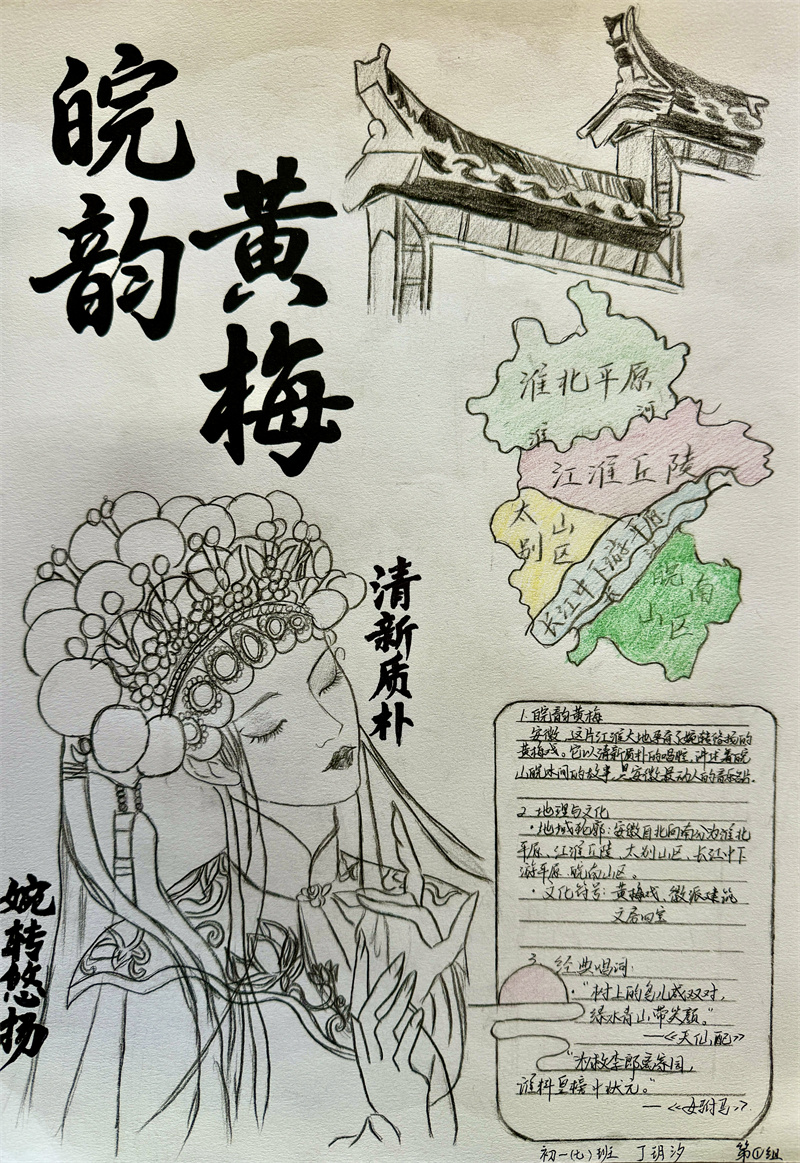 皖韵
黄梅
淮北平原
淮河
江淮丘陵
大别山区
长江中下游平原
皖南山区
清新质朴
婉转悠扬
1. 皖韵黄梅
安徽,这片江淮大地孕育了婉转悠扬的
黄梅戏。它以清新质朴的唱腔,讲述着皖
山皖水间的故事,是安徽最动人的音乐名片.
2. 地理与文化
·地域轮廓:安徽自北向南分为淮北
平原、江淮丘陵、大别山区、长江中下
游平原、皖南山区。
·文化符号:黄梅戏、徽派建筑
文房四宝
3. 经典唱词:
·"树上的鸟儿成双对,
绿水青山带笑颜。"
—《天仙配》
"为救李郎离家园,
谁料皇榜中状元。"
—《女驸马》
初一(七)班 丁玥汐 第①组